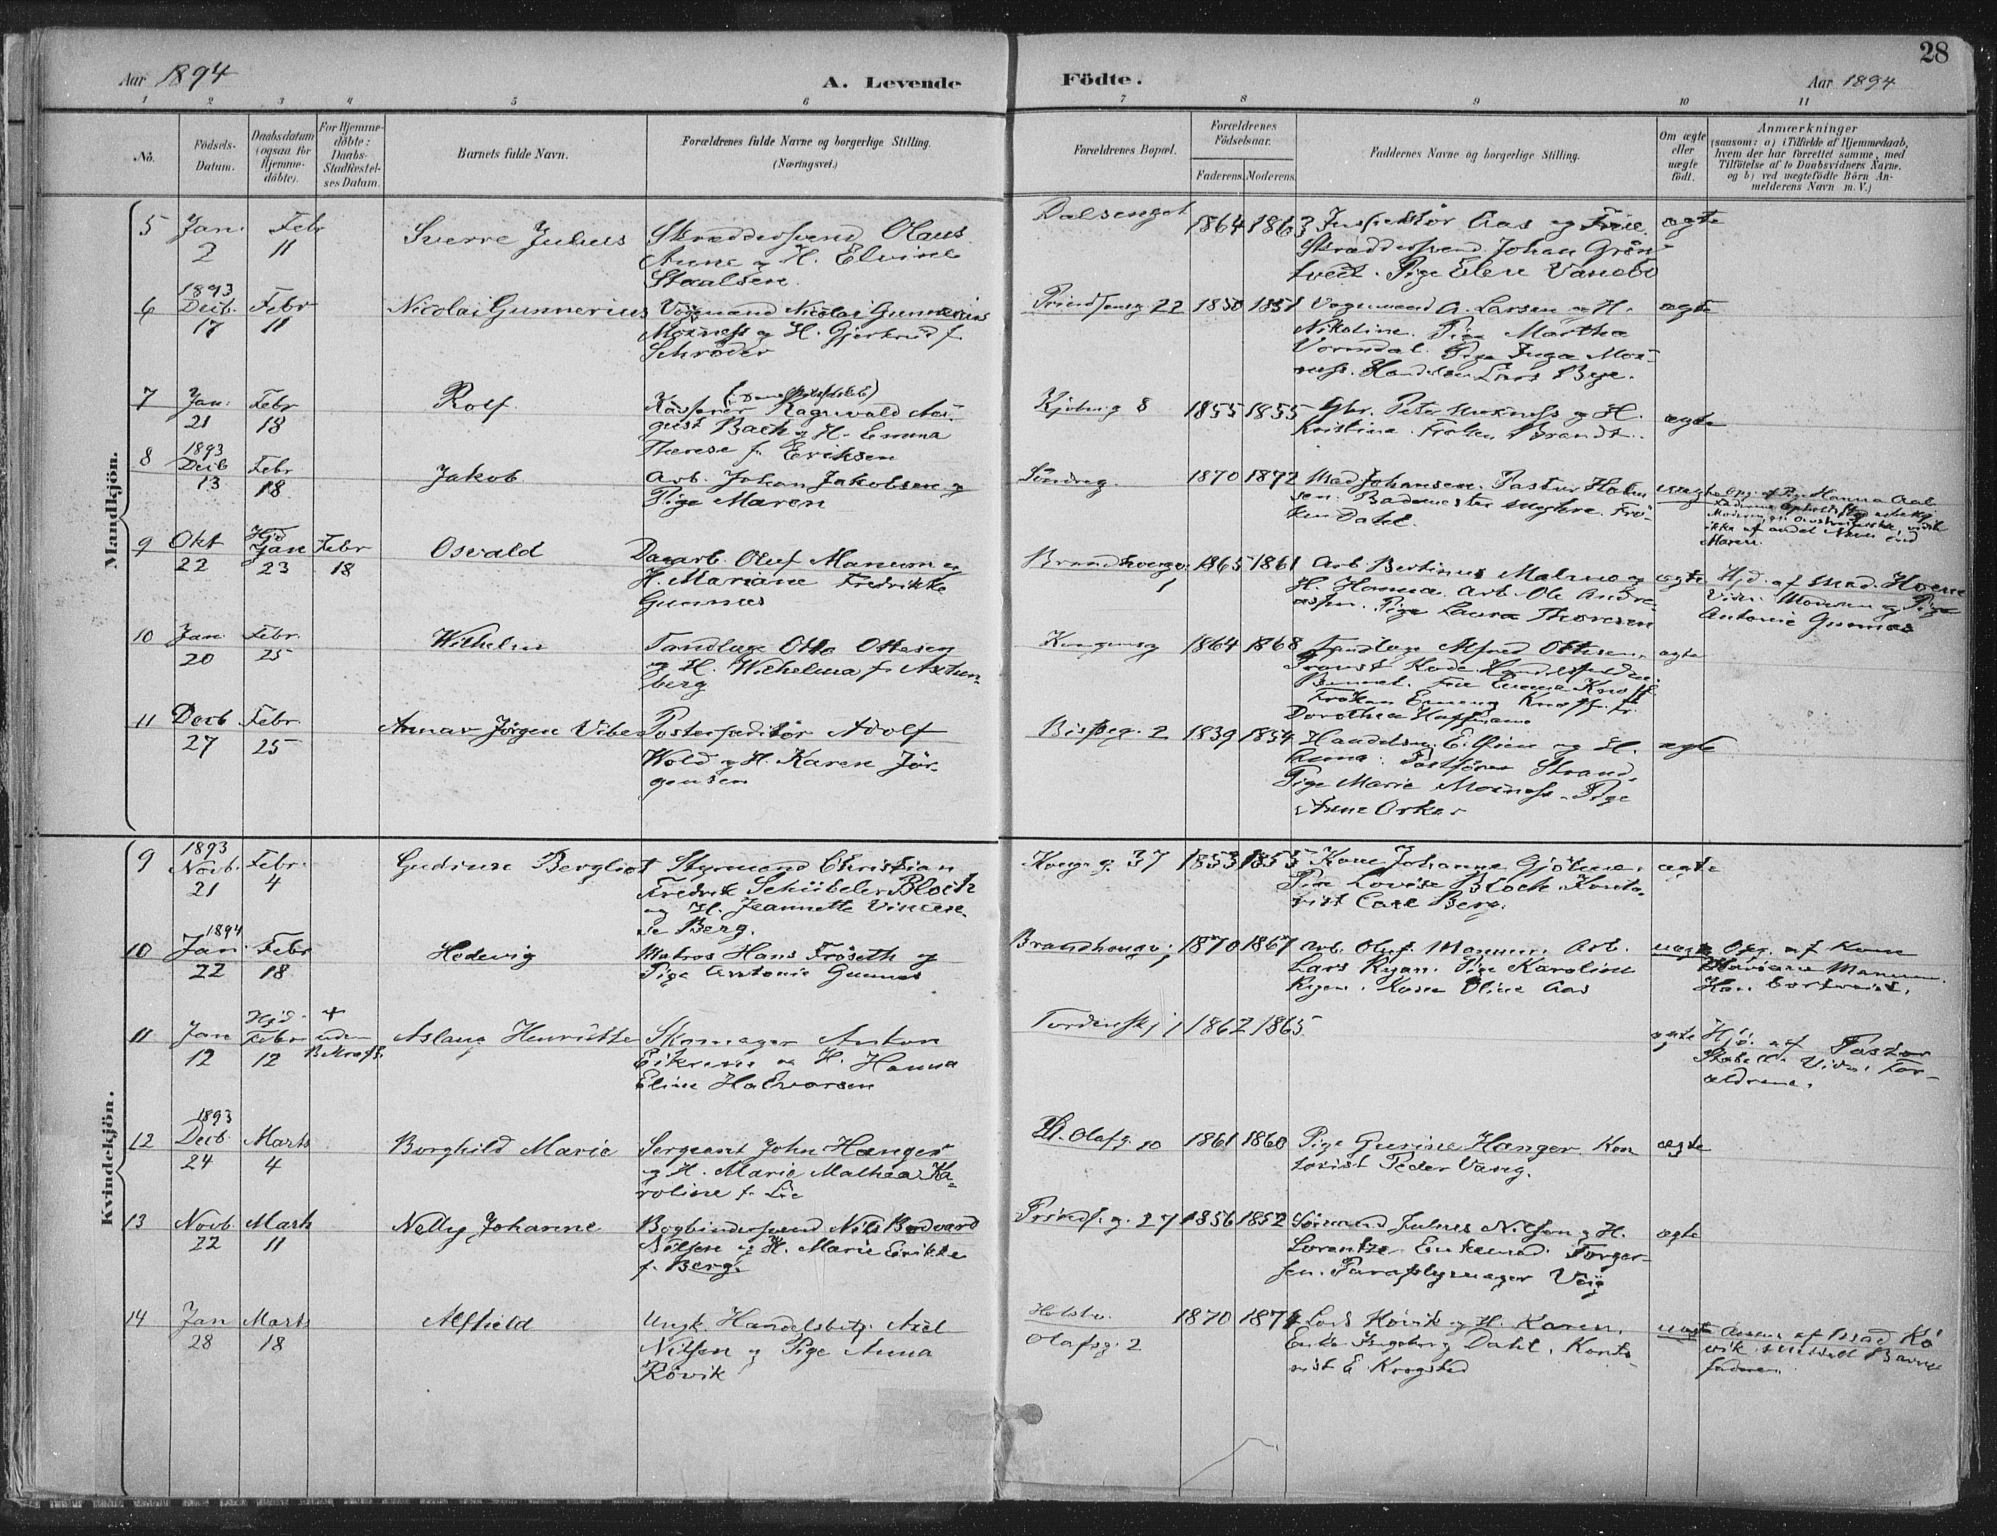 28
Aar 1894
A. Levende
Födte.
Aar 1894
1 2 3 4 5 6 7 8 9 10 11
No.
Födsels-
Datum.
Daabsdatum
(ogsaa for
Hjemme-
döbte).
For Hjemme-
döbte:
Daabs-
Stadfæstel-
ses Datum.
Barnets fulde Navn.
Forældrenes fulde Navne og borgerlige Stilling.
(Næringsvei.)
Forældrenes Bopæl.
Forældrenes
Födselsaar.
Faderens. Moderens.
Faddernes Navne og borgerlige Stilling.
Om ægte
eller
uægte
födt.
Anmærkninger
(saasom: a) i Tilfælde af Hjemmedaab,
hvem der har forrettet samme, med
Tilföielse af to Daabsvidners Navne,
og b) ved uægtefödte Börn An-
melderens Navn m. V.)
Mandkjön.
5 Jan. 2 Febr 11 Sverre Julius
Skræddersvend Olaus
Aune og H. Elvine
Staalsen
Dalsenget 1864 1863
Inspektör Aas og Frue.
Skræddersvend Johan Grön-
tveit. Pige Elen Vanebo
ægte
6 1893 Decb. 17 Febr 11 Nicolai Gunnerius
Vognmand Nicolai Gunnerius
Moxness og H. Gjertrud f.
Schröder
Prindsensg 22 1850 1851
Vognmand A. Larsen og H.
Nikoline. Pige Martha
Vormdal. Pige Inga Mox-
ness. Lars Bye.
ægte
7 Jan. 21 Febr 18 Rolf
Kasserer Ragnvald Au-
gust Bach og H. Emma
Therese f. Eriksen
Kjöbmg 8 1855 1855
Gbr. Peter Moxness og H.
Kristine. Fröken Brandt.
ægte
8 1893 Decb 13 Febr 18 Jakob
Arb. Johan Jakobsen og
Pige Maren
Söndreg. 1870 1872
Mad Johansen. Pastur Holm-
sen. Bademester Frö-
ken Dahl.
uægte Opg. af Hanna Aal
ikke af andet Navn end
Maren.
9 Okt 22 Hjd Jan 23 Febr 18 Osvald
Dagarb. Oluf Manum og
H. Mariane Fredrikke
Gunnes
Brandhougv. 1 1865 1861
Arb Bertinus Malmo og
H. Hanna. Arb. Ole Andre-
assen. Pige Laura Thoresen
ægte
Hjd. af Mad. Hoem
Vidn. Moderen og Pige
Antonie Gunnes
10 Jan. 20 Febr. 25 Wilhelm
Tandlæge Otto Ottesen
og H. Wilhelmina f. Axtun-
berg
Kongensg 1864 1868
Tandlæge Alfred Ottesen.
Fru Emma Knoff
Fröken Emmy Knoff. Fr.
Dorothea Hoffmann
ægte
11 Decb 27 Febr. 25 Annar Jörgen Vibe
Postexpeditör Adolf
Wold og H. Karen Jör-
gensen
Bispeg. 2 1839 1854
Handelsm. E. Oien og H.
Anna. Postförer Strand.
Pige Marie Moxness. Pige
Anne Orker
ægte
Kvindekjön.
9 1893 Novb. 21 Febr. 4 Gudrun Bergliot
Styrmand Christian
Fredrik Schübeler Bloch
og H. Jeannette Vincen-
se Berg.
Kongsg. 37 1853 1855
Kone Johanne Gjölme.
Pige Lovise Bloch. Konto-
rist Carl Berg.
ægte
10 1894 Jan. 22 Febr 18 Hedevig
Matros Hans Fröseth og
Pige Antonie Gunnes
Brandhougv. 1 1870 1867
Arb. Oluf Manum. Arb.
Lars Rygn. Pige Karoline
Rygen. Kone Oline Aas
uægte Opg. af Kone
Mariane Manum.
Han bortreist.
11 Jan 12 Hjd. Febr 12 + uden Bekræft. Aslaug Henriette
Skomager Anton
Eikrem og H. Hanna
Eline Halvorsen
Tordenskj 1 1862 1865
ægte
Hjd. af Pastor
Stabell. Vidn. For-
ældrene.
12 1893 Decb. 24 Marts 4 Borghild Marie
Sergeant John Hanger
og H. Marie Mathea Ka-
roline f. Lie
St. Olafg. 10 1861 1860
Pige Gurine Hanger. Kon
torist Peder Vang.
ægte
13 Novb 22 Marts 11 Nelly Johanne
Bogbindersvend Nils Bodvard
Nilsen og H. Marie Erikke
f. Berg.
Prinds. g. 27 1856 1852
Sömand Julius Nilsen og H.
Lorentze. Enkemand Torger-
sen. Paraplymager Veig
ægte
14 Jan 28 Marts 18 Alfhild
Ungk. Handelsbetj. Axel
Nilsen og Pige Anna
Kövik
Olafsg. 2 1870 1871
Lars Kövik og H. Karen.
Enke Ingeborg Dahl. Konto-
rist E Krogstad
uægte Anm. af Mad Kö
vik
faderen.